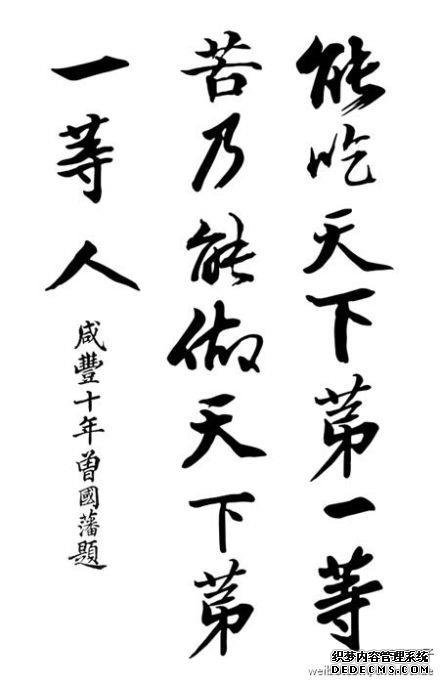 能吃天下第一等
苦乃能做天下第
一等人
咸豐十年曾國藩題
织梦内容管理系统
DEDECMS.COM